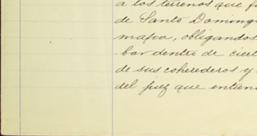 a los terrenos que
de Santo Doming
obligandos
bar dentro de cier
de sus coherederos y
del juez que entien